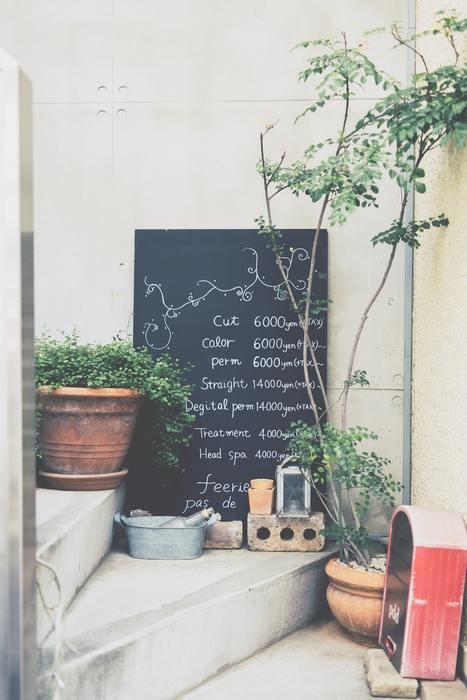 Cut 6000yen(+TAX)~
Color 6000yen(+TAX)~
perm 6000yen(+TAX)~
Straight 14000yen(+TAX)~
Degital perm 14000yen(+TAX)~
Treatment 4000yen(+TAX)~
Head spa 4000yen
feerie
pas de